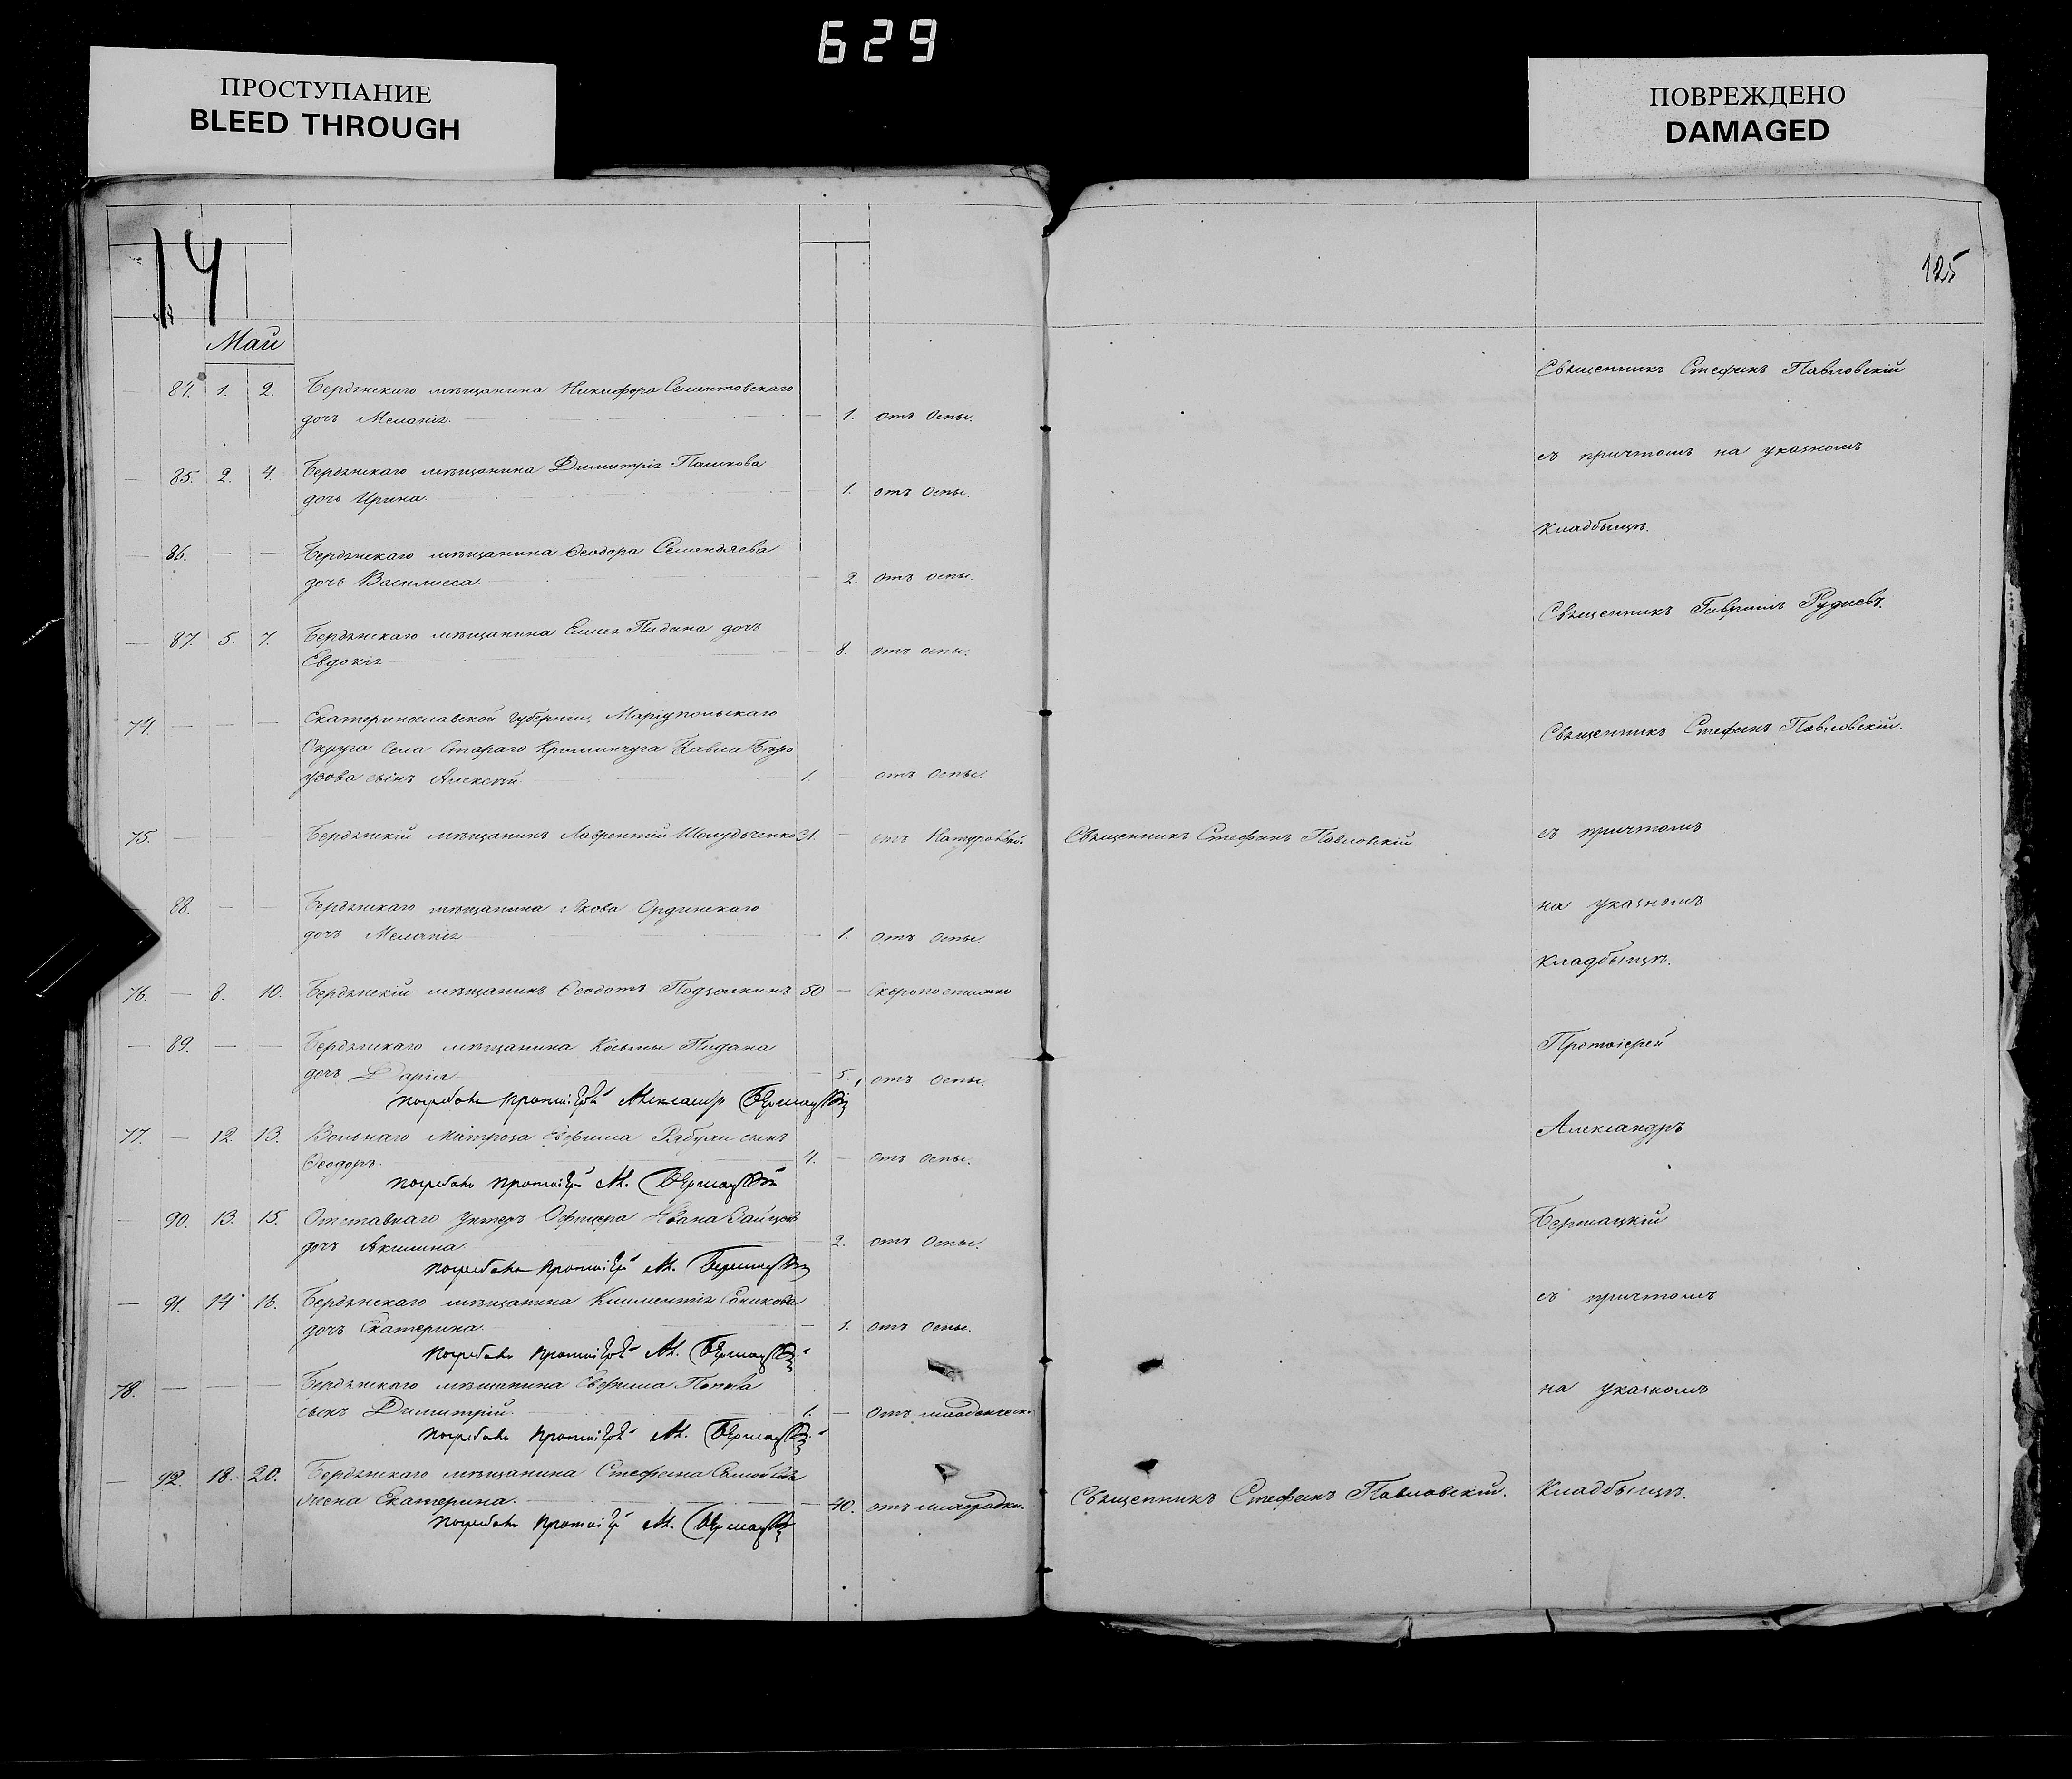 629
ПРОСТУПАНИЕ
BLEED THROUGH
ПОВРЕЖДЕНО
DAMAGED
14
125
Май
— 84. 1. 2. Бердянскаго мѣщанина Никифора Сементовскаго
дочь Меланія. — 1. отъ оспы.
— 85. 2. 4. Бердянскаго мѣщанина Димитрія Пашкова
дочь Ирина. — 1. отъ оспы.
— 86. — — Бердянскаго мѣщанина Ѳеодора Семендяева
дочь Василиса. — 2. отъ оспы.
— 87. 5. 7. Бердянскаго мѣщанина Пидана дочь
Евдокія — 8. отъ оспы.
74. — — — Екатеринославской губерніи, Маріупольскаго
Округа Села Стараго Кременчуга Павла
сынъ Алексѣй. 1. — отъ оспы.
75. — — — Бердянскій мѣщанинъ Лаврентій 31. — отъ
— 88. — — Бердянскаго мѣщанина Якова Ордынскаго
дочь Меланія — 1. отъ оспы.
76. — 8. 10. Бердянскій мѣщанинъ Ѳеодотъ 50 — Скоропостижно
— 89. — — Бердянскаго мѣщанина Косьмы Пидана
дочь Дарія — 5. отъ оспы.
погребалъ протоіерей Александръ Бершацкій
77. — 12. 13. Вольнаго Матроза Евфима Рябухи сынъ
Ѳеодоръ. 4. — отъ оспы.
погребалъ протоіерей А. Бершацкій
— 90. 13. 15. Отставнаго Унтеръ Офицера Ивана Зайцова
дочь Акилина — 2. отъ оспы.
погребалъ протоіерей А. Бершацкій
— 91. 14. 16. Бердянскаго мѣщанина Климентія
дочь Екатерина. — 1. отъ оспы.
погребалъ протоіерей А. Бершацкій
78. — — — Бердянскаго мѣщанина Евфима Попова
сынъ Димитрій. 1. — отъ младенческ.
погребалъ протоіерей А. Бершацкій
— 92. 18. 20. Бердянскаго мѣщанина Стефана
жена Екатерина. — 40. отъ лихорадки.
погребалъ протоіерей А. Бершацкій
Священникъ Стефанъ Павловскій
Священникъ Стефанъ Павловскій.
Священникъ Стефанъ Павловскій
съ причтомъ на указномъ
кладбищѣ.
Священникъ Гавріилъ Рудневъ.
Священникъ Стефанъ Павловскій.
съ причтомъ
на указномъ
кладбищѣ.
Протоіерей
Александръ
Бершацкій
съ причтомъ
на указномъ
Кладбищѣ.